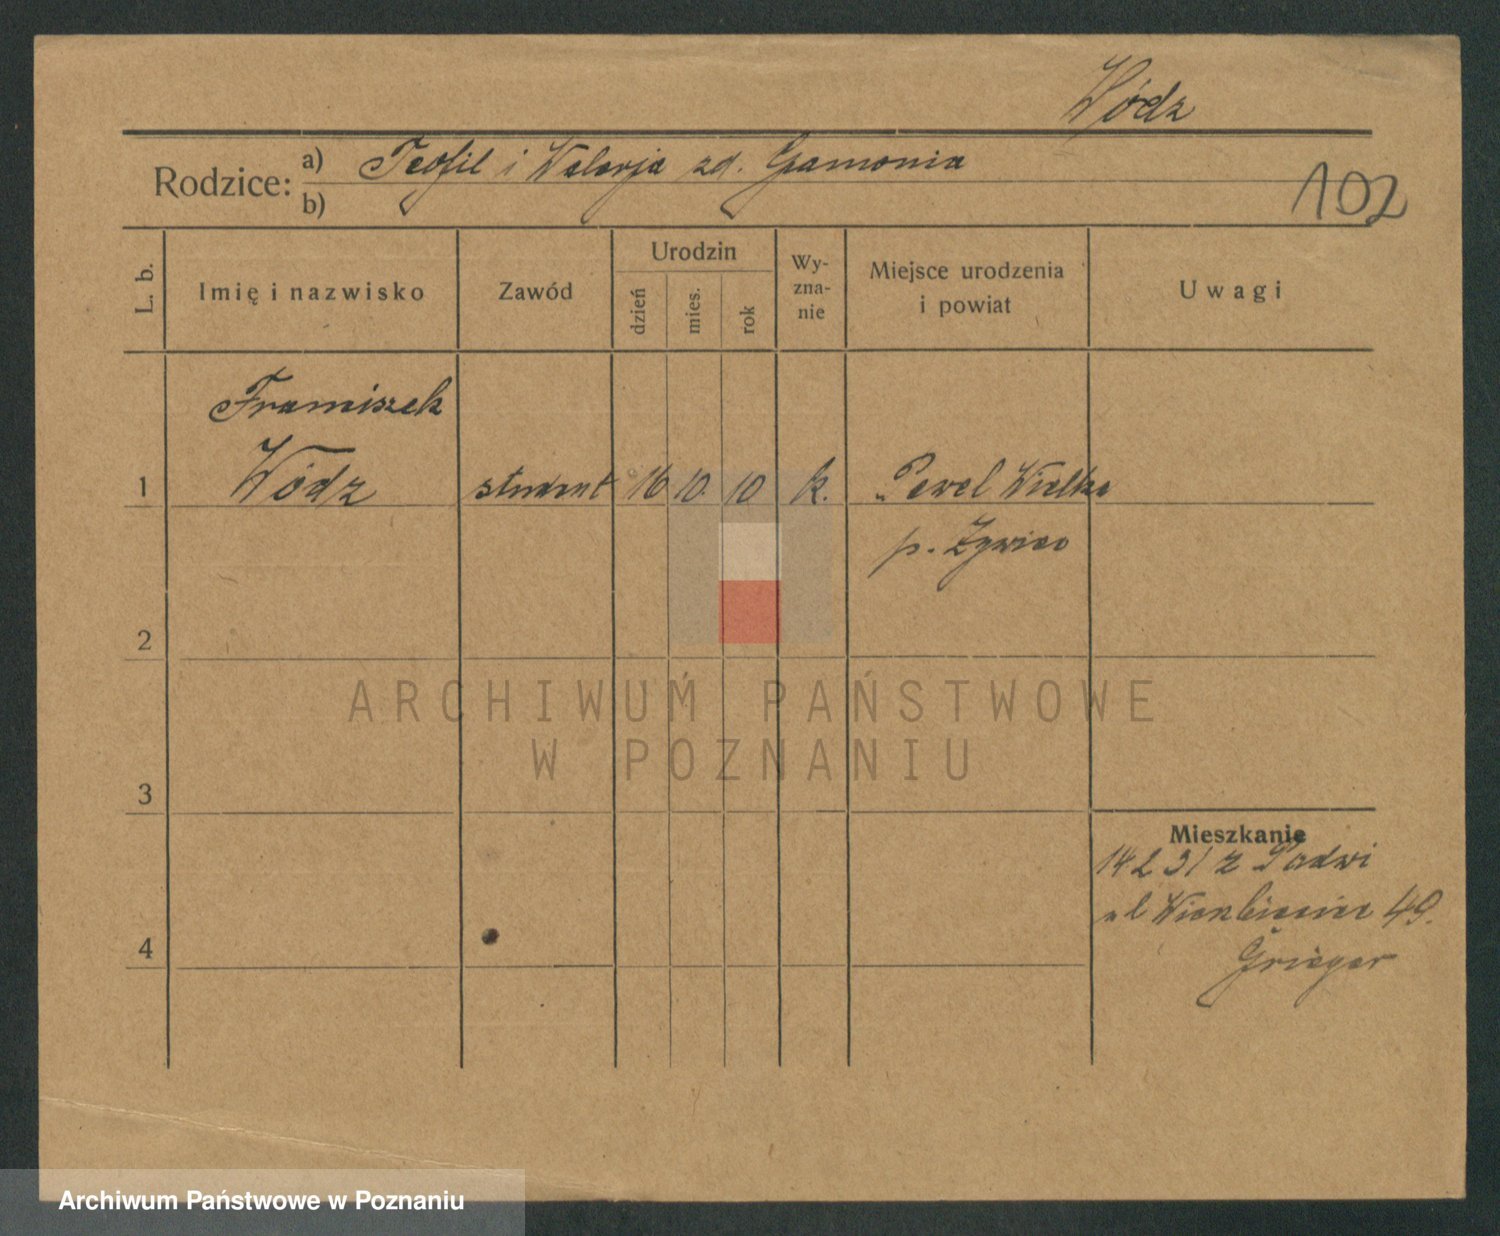 Wódz
Rodzice: a) Teofil i Walerja zd. Gamonia
b)
102
L. b. Imię i nazwisko Zawód Urodzin dzień mies. rok Wy-zna-nie Miejsce urodzenia i powiat Uwagi
Franciszek
1 Wódz student 16 10. 10 k. Pewel Wielka
p. Żywiec
2
ARCHIWUM PAŃSTWOWE
W POZNANIU
3
Mieszkanie
14 2 31 z
ul 49.
4
Grieger
Archiwum Państwowe w Poznaniu